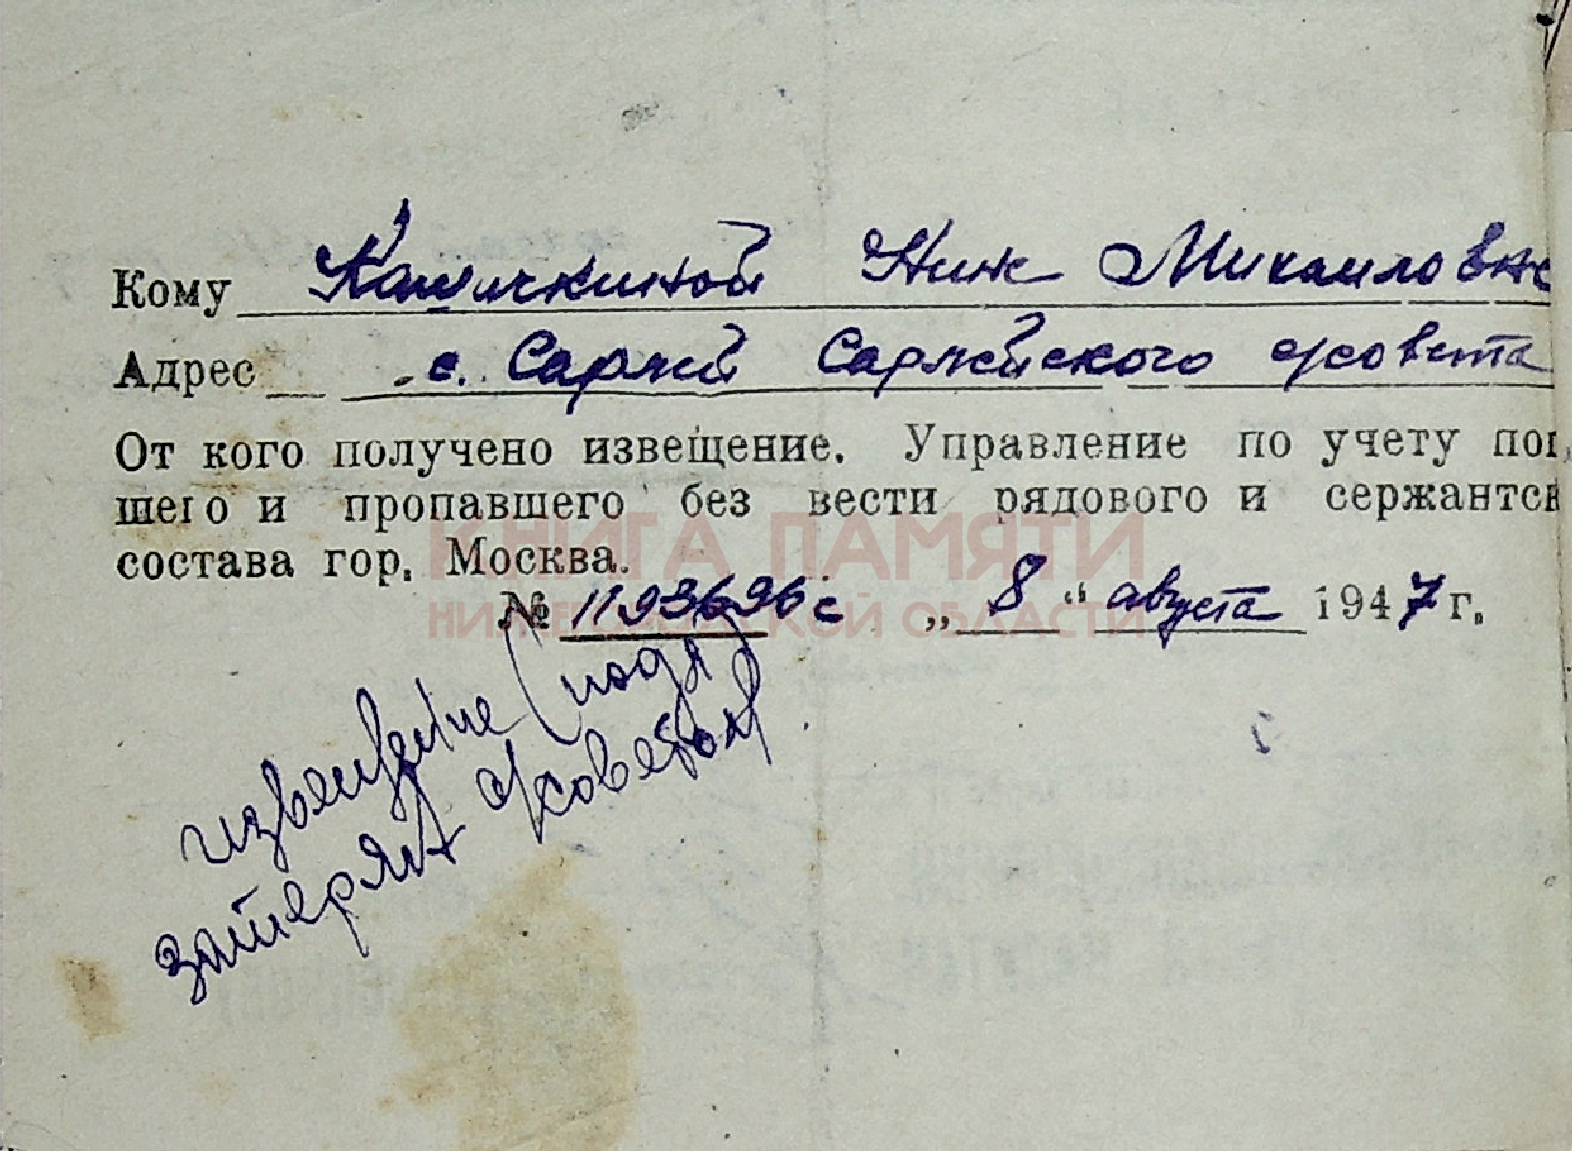 Кому Камичкиной Нине Михаиловне
Адрес с. Сарлей Сарлейского с/совета
От кого получено извещение. Управление по учету пог
шего и пропавшего без вести рядового и сержантск
состава гор. Москва.
КНИГА ПАМЯТИ
НИЖЕГОРОДСКОЙ ОБЛАСТИ
№ 1193696с „8“ августа 1947 г.
извещение (подл)
затерял с/советом.